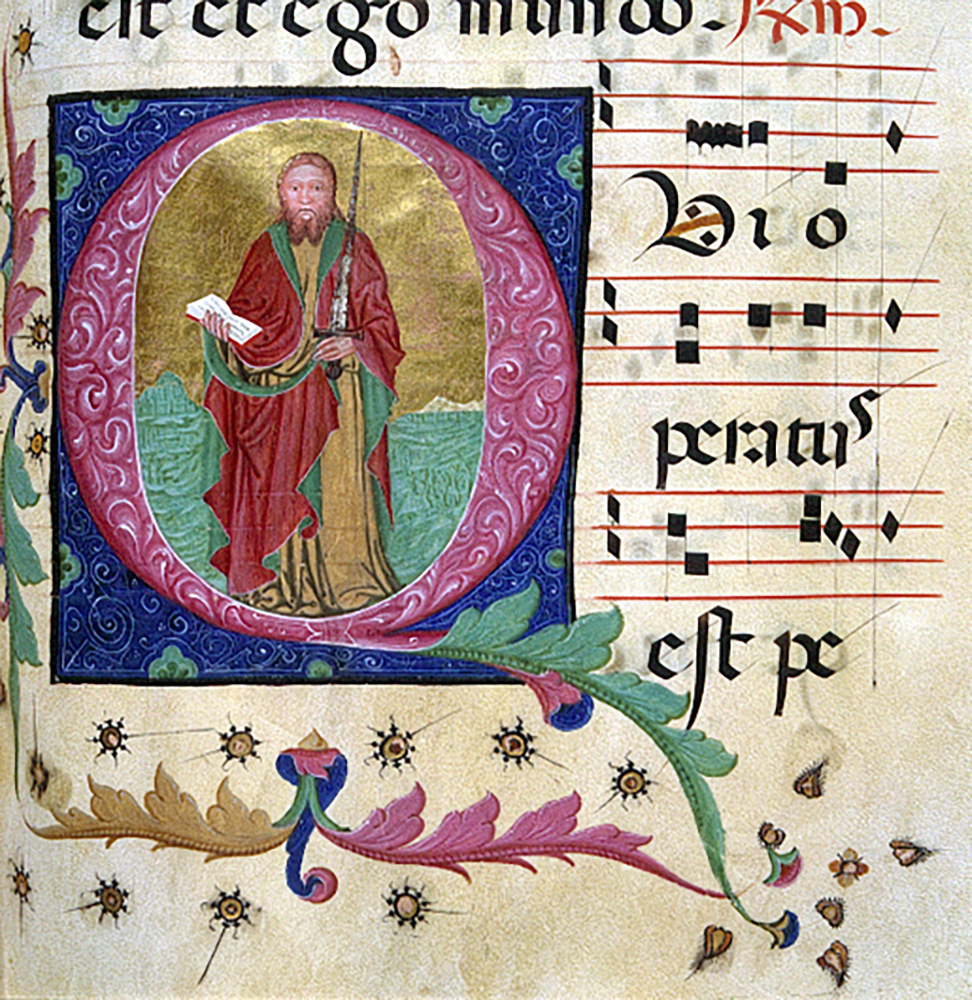 est et ego mundo.
QVi o
peratus
est pe